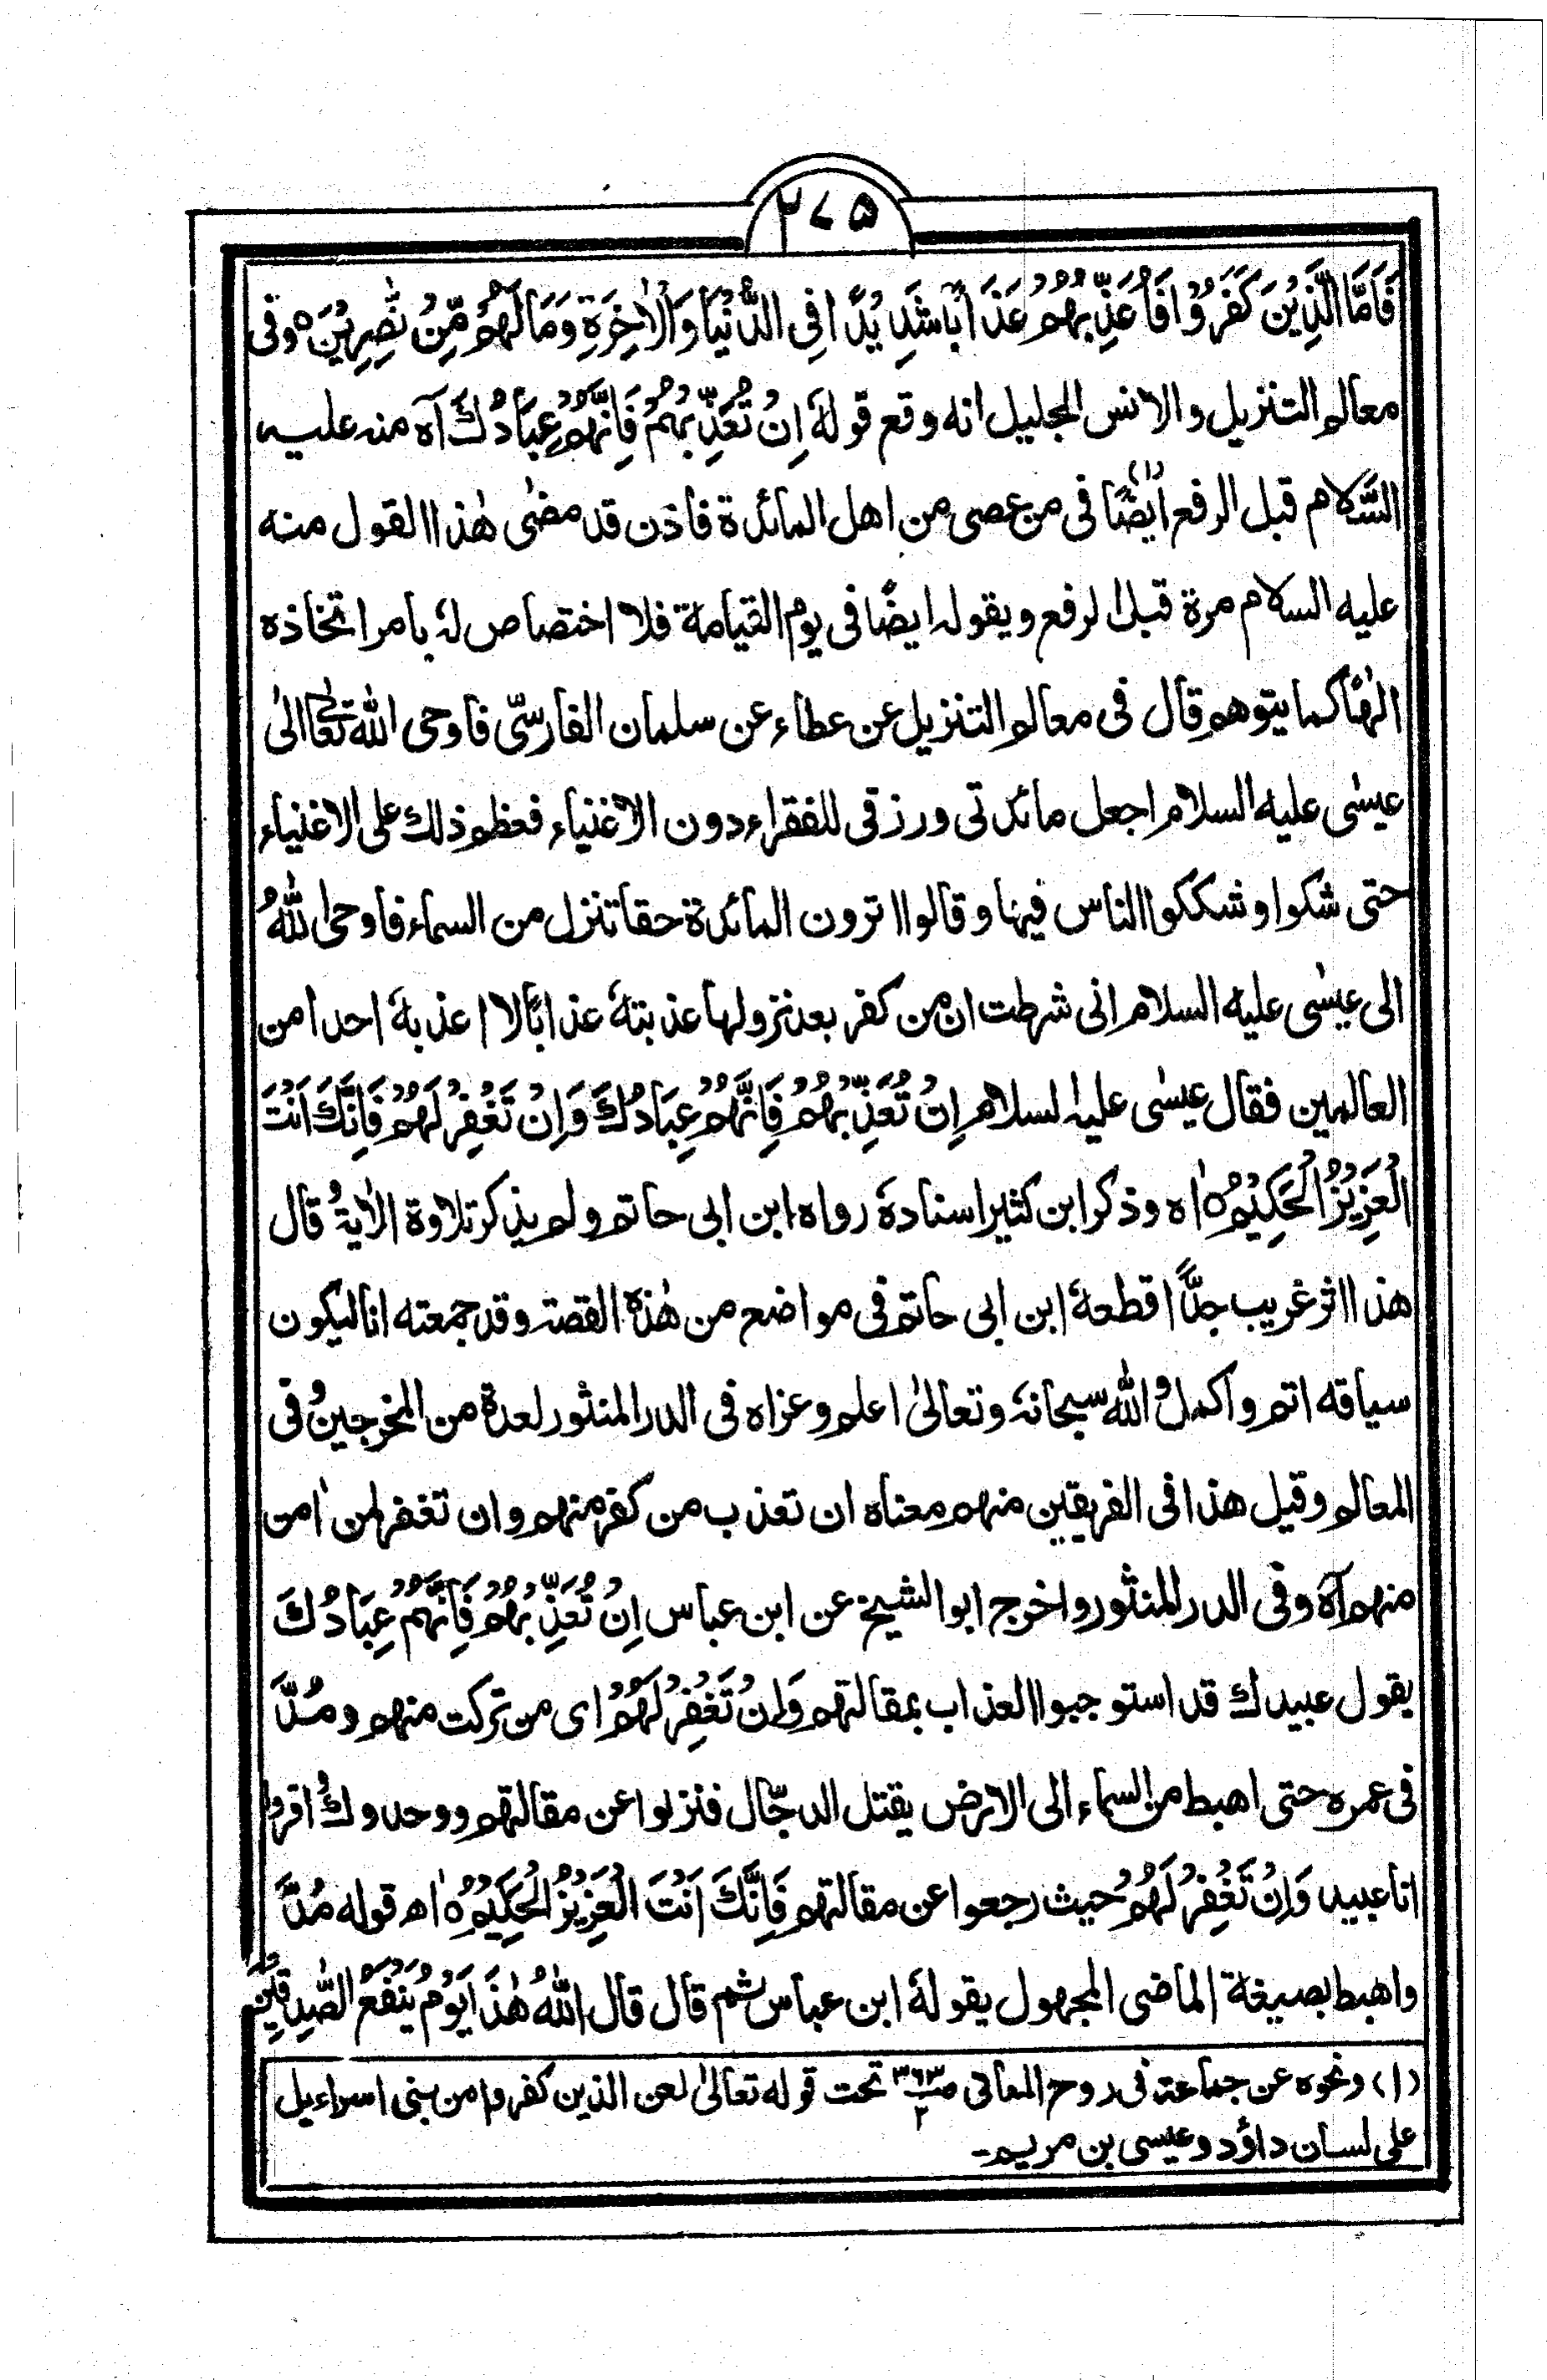 ۲۷۵
فَاَمَّا الَّذِيْنَ كَفَرُوْا فَاُعَذِّبُهُمْ عَذَابًا شَدِيْدًا فِى الدُّنْيَا وَالْاٰخِرَةِ وَمَا لَهُمْ مِّنْ نّٰصِرِيْنَ ہ وفى
معالم التنزيل والانس الجليل انه وقع قولهٗ اِنْ تُعَذِّبْهُمْ فَاِنَّهُمْ عِبَادُكَ آه منه عليه
السَّلام قبل الرفع ايضًا (۱) فى من عصى من اهل المائدة فاذن قد مضٰى هٰذا القول منه
عليه السلام مرة قبل الرفع ويقوله ايضًا فى يوم القيامة فلا اختصاص لهٗ بامر اتخاذه
الٰهًا كما يتوهم قال فى معالم التنزيل عن عطاء عن سلمان الفارسىّ فاوحى الله تعالٰى الىٰ
عيسٰى عليه السلام اجعل مائدتى ورزقى للفقراء دون الاغنياء فعظم ذلك على الاغنياء
حتى شكوا وشككوا الناس فيها وقالوا اترون المائدة حقا تنزل من السماء فاوحى اللهُ
الى عيسٰى عليه السلام انى شرطت ان من كفر بعد نزولها عذبتهٗ عذابًا لا اعذبهٗ احدا من
العالمين فقال عيسٰى عليه السلام اِنْ تُعَذِّبْهُمْ فَاِنَّهُمْ عِبَادُكَ وَاِنْ تَغْفِرْ لَهُمْ فَاِنَّكَ اَنْتَ
الْعَزِيْزُ الْحَكِيْمُ ہ اه وذكر ابن كثير اسنادهٗ رواه ابن ابى حاتم ولم يذكر تلاوة الاٰية قال
هذا اثر غريب جدًّا قطعهٗ ابن ابى حاتم فى مواضع من هٰذه القصة وقد جمعته انا ليكون
سياقه اتم واكمل والله سبحانهٗ وتعالىٰ اعلم وعزاه فى الدر المنثور لعدة من المخرجين وفى
المعالم وقيل هذا فى الفريقين منهم معناه ان تعذب من كفر منهم وان تغفر لمن اٰمن
منهم آه وفى الدر المنثور واخرج ابو الشيخ عن ابن عباس اِنْ تُعَذِّبْهُمْ فَاِنَّهُمْ عِبَادُكَ
يقول عبيدك قد استوجبوا العذاب بمقالتهم وَاِنْ تَغْفِرْ لَهُمْ اى من تركت منهم ومُدَّ
فى عمره حتى اهبط من السماء الى الارض يقتل الدجّال فنزلوا عن مقالتهم ووحدوك واقروا
انا عبيد وَاِنْ تَغْفِرْ لَهُمْ حيث رجعوا عن مقالتهم فَاِنَّكَ اَنْتَ الْعَزِيْزُ الْحَكِيْمُ ہ اه قوله مُدَّ
واهبط بصيغة الماضى المجهول يقولهٗ ابن عباس ثم قال قال اللهُ هٰذَا يَوْمُ يَنْفَعُ الصّٰدِقِيْنَ
(۱) ونحوه عن جماعة فى روح المعانى صـ۳۶۳ ۲ تحت قوله تعالىٰ لعن الذين كفروا من بنى اسراءيل
على لسان داؤد وعيسى بن مريم۔